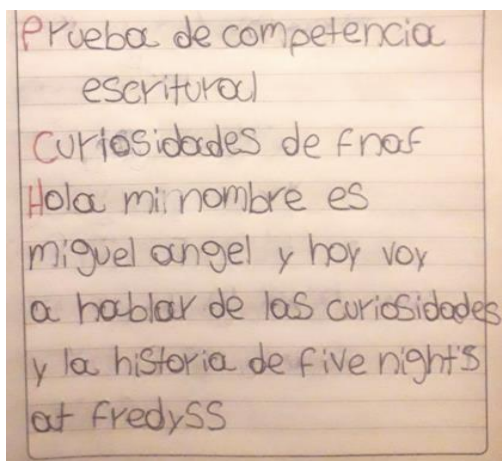 Prueba de competencia
escritural
Curiosidades de fnaf
Hola mi nombre es
miguel angel y hoy voy
a hablar de las curiosidades
y la historia de five night's
at fredyss